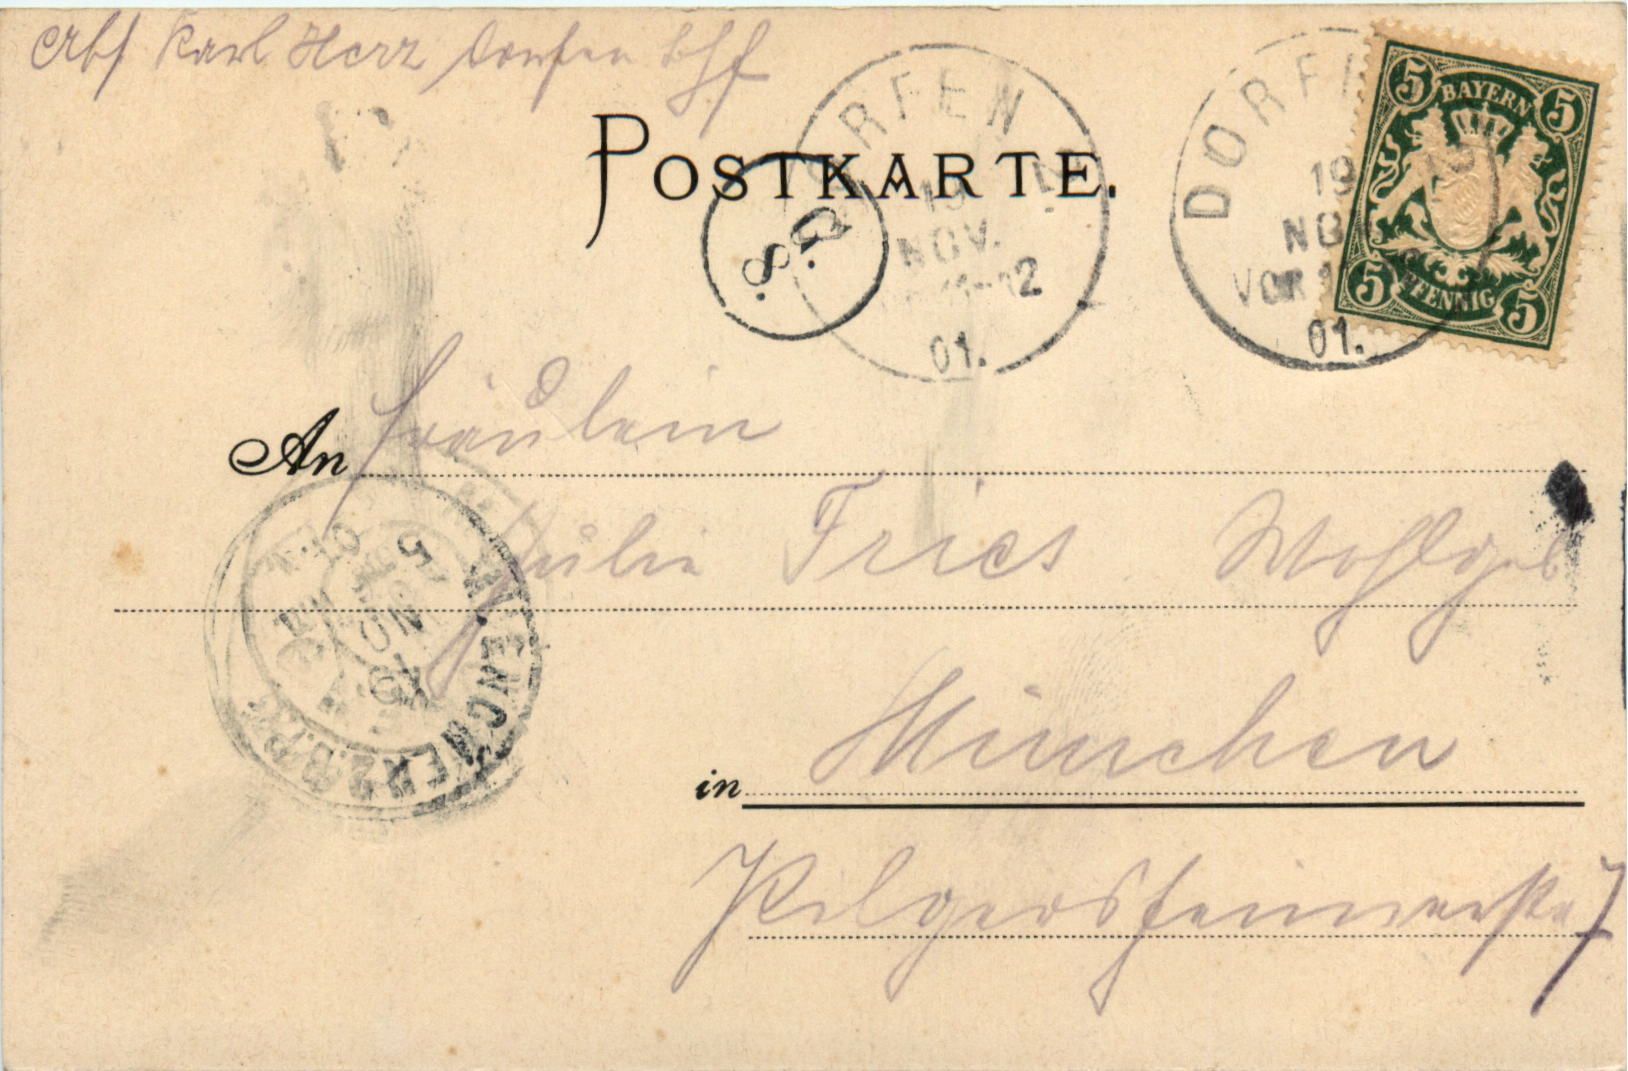 Abs Karl Herz Dorfen Bhf
POSTKARTE.
DORFEN
19
NOV.
11-12
01.
G. S.
DORF
19
NOV
VOR 1
01.
5 BAYERN 5
5 PFENNIG 5
An Fräulein
Julie Fries Wohlgeb
in München
Pilgersheimerstr 7
MUENCHEN 2.B.P.
19
NOV
5